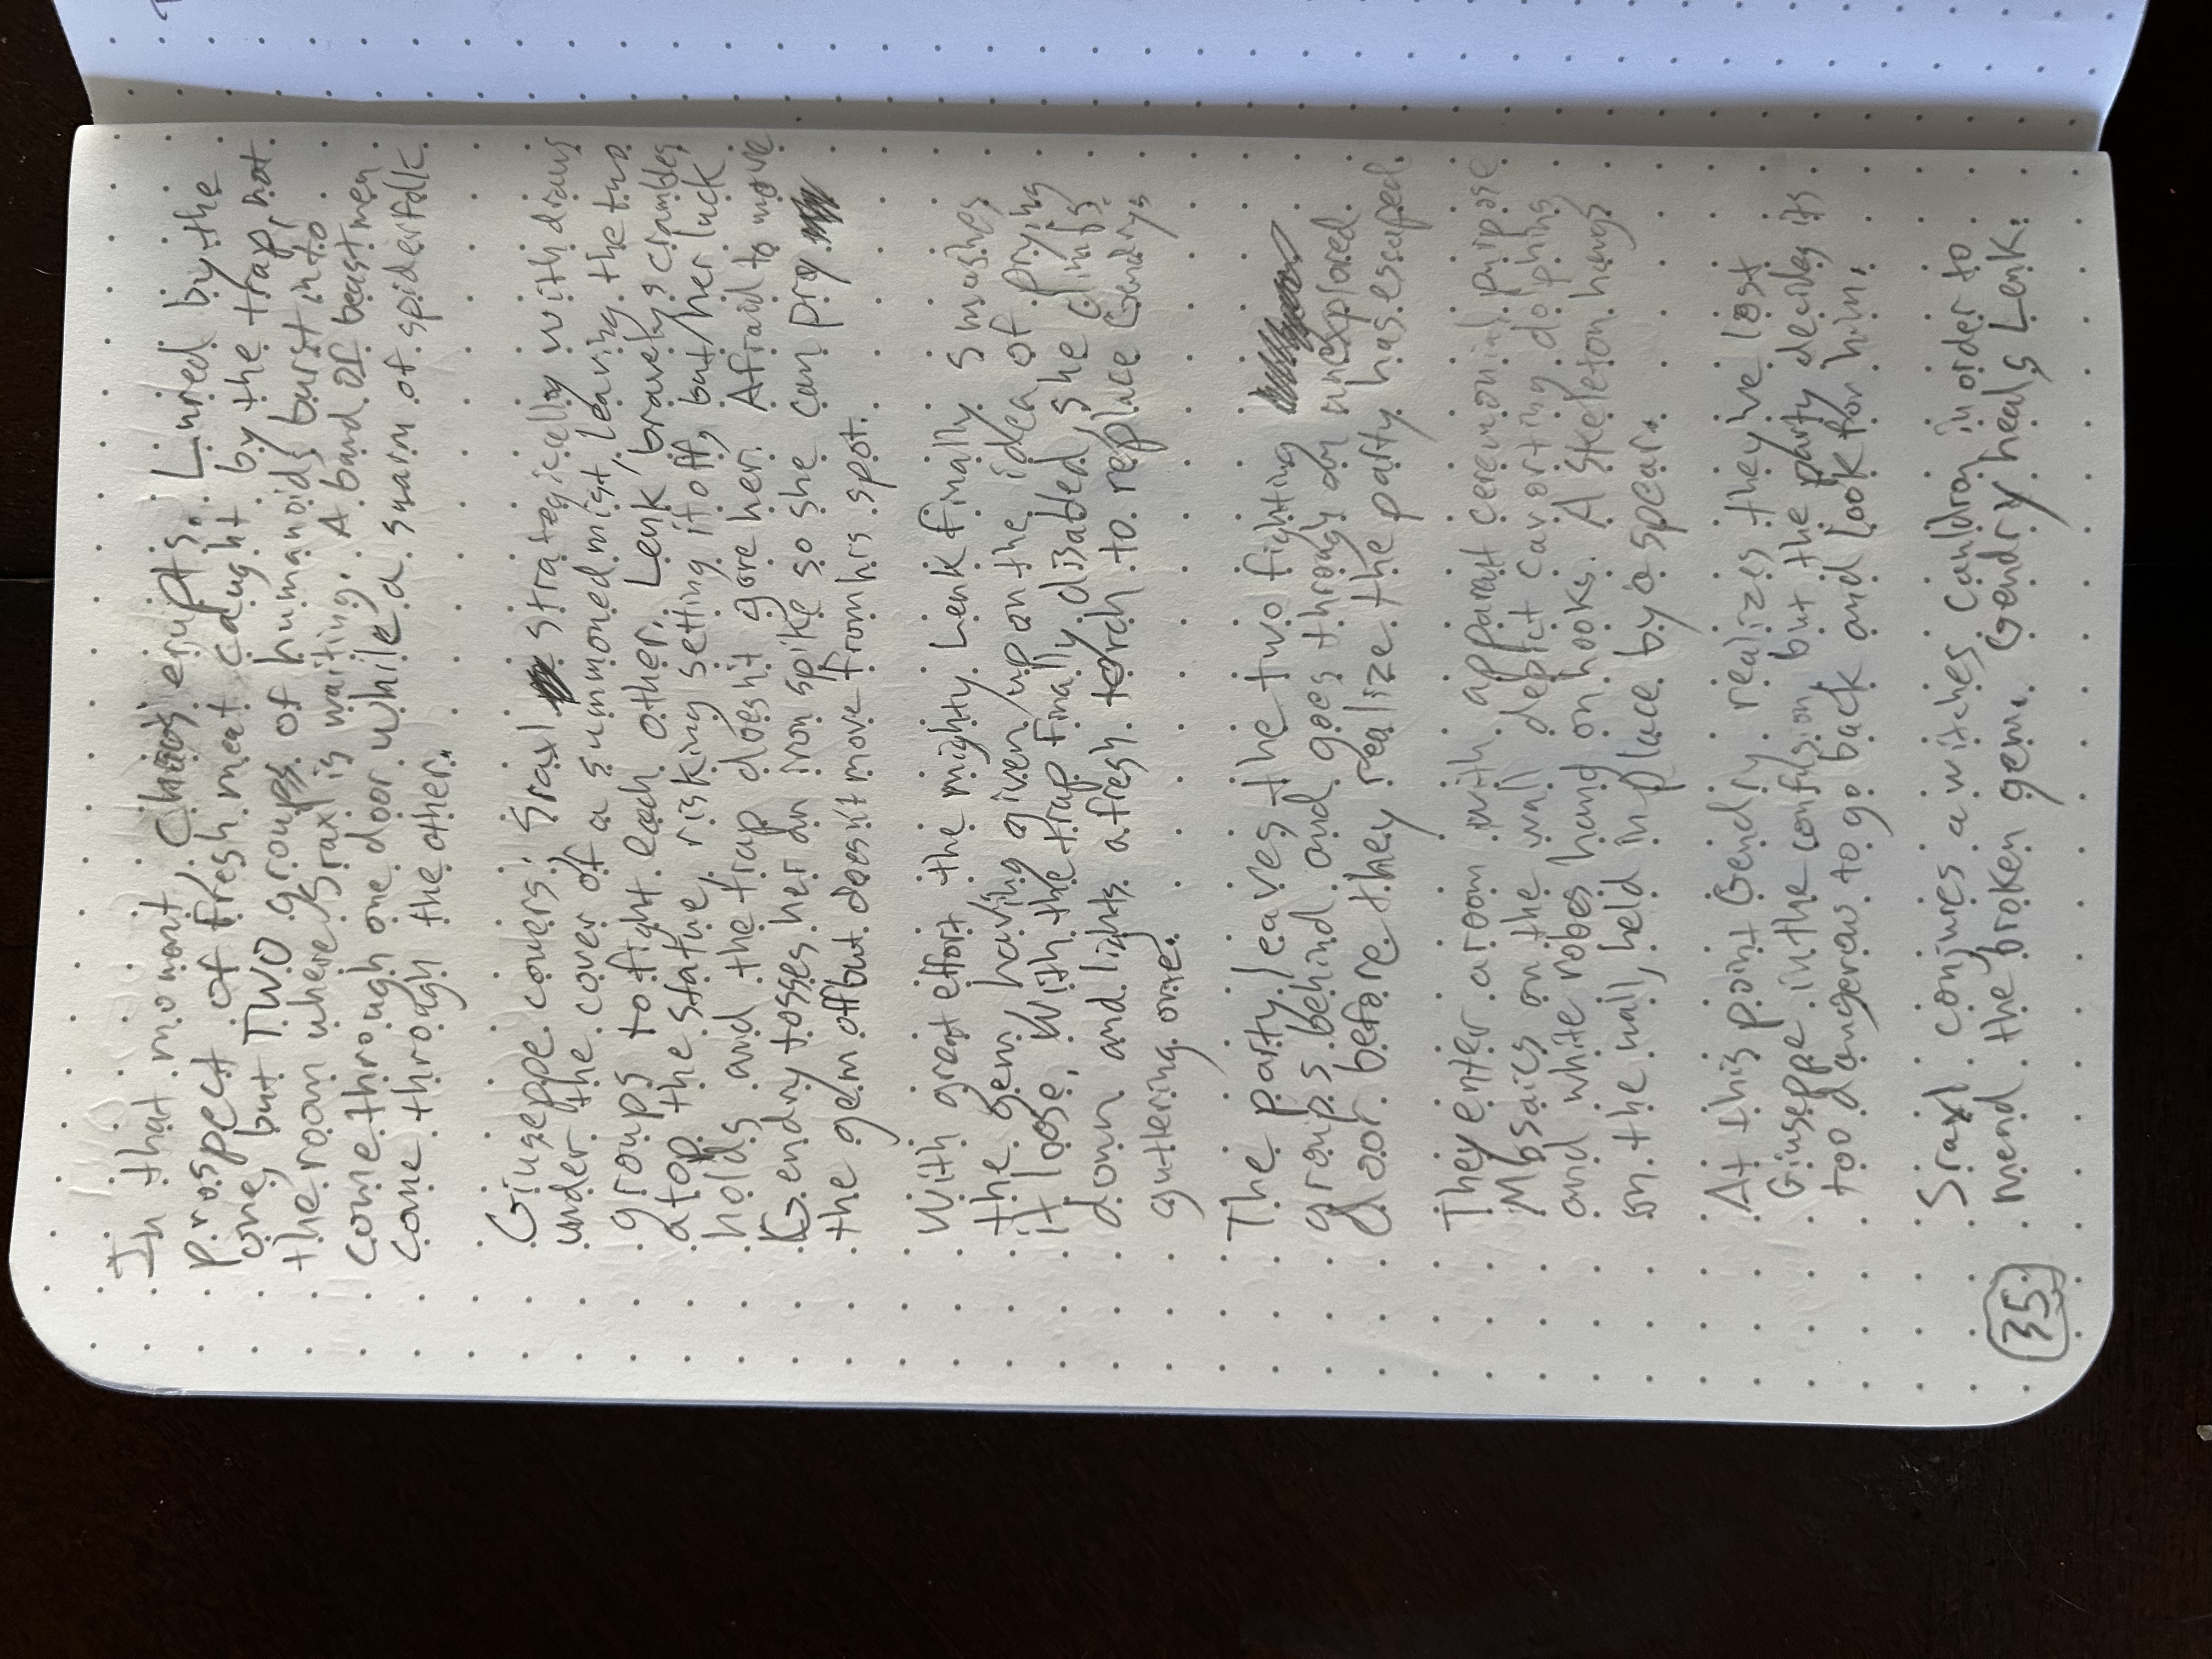 In that moment, Chaos erupts. Lured by the
prospect of fresh meat caught by the trap, not
one, but TWO groups of humanoids burst into
the room where Sraxl is waiting. A band of beastmen
come through one door while a swarm of spiderfolk
come through the other.
Giuseppe covers. Sraxl strategically withdraws
under the cover of a summoned mist, leaving the two
groups to fight each other. Lenk bravely clambers
atop the statue, risking setting it off, but her luck
holds and the trap doesn't gore her. Afraid to move
Gendry tosses her an iron spike so she can pry
the gem off but doesn't move from his spot.
With great effort the mighty Lenk finally smashes
the gem having given up on the idea of prying
it loose. With the trap finally disabled, she climbs
down and lights a fresh torch to replace Gendry's
guttering one.
The party leaves the two fighting
groups behind and goes through an unexplored
door before they realize the party has escaped.
They enter a room with apparent ceremonial purpose
Mosaics on the wall depict cavorting dolphins
and white robes hang on hooks. A skeleton hangs
on the wall, held in place by a spear.
At this point Gendry realizes they've lost
Giuseppe in the confusion but the party decides its
too dangerous to go back and look for him.
Sraxl conjures a witches cauldron in order to
mend the broken gem. Gendry heals Lenk.
35